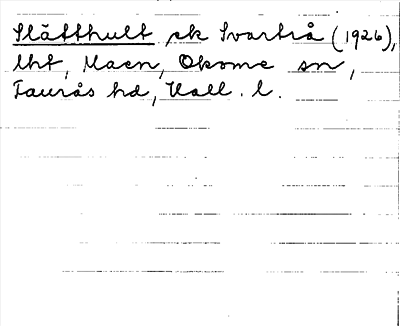 Slätthult pk Svartrå (1926),
lht, Maen, Okome sn,
Faurås hd, Hall. l.